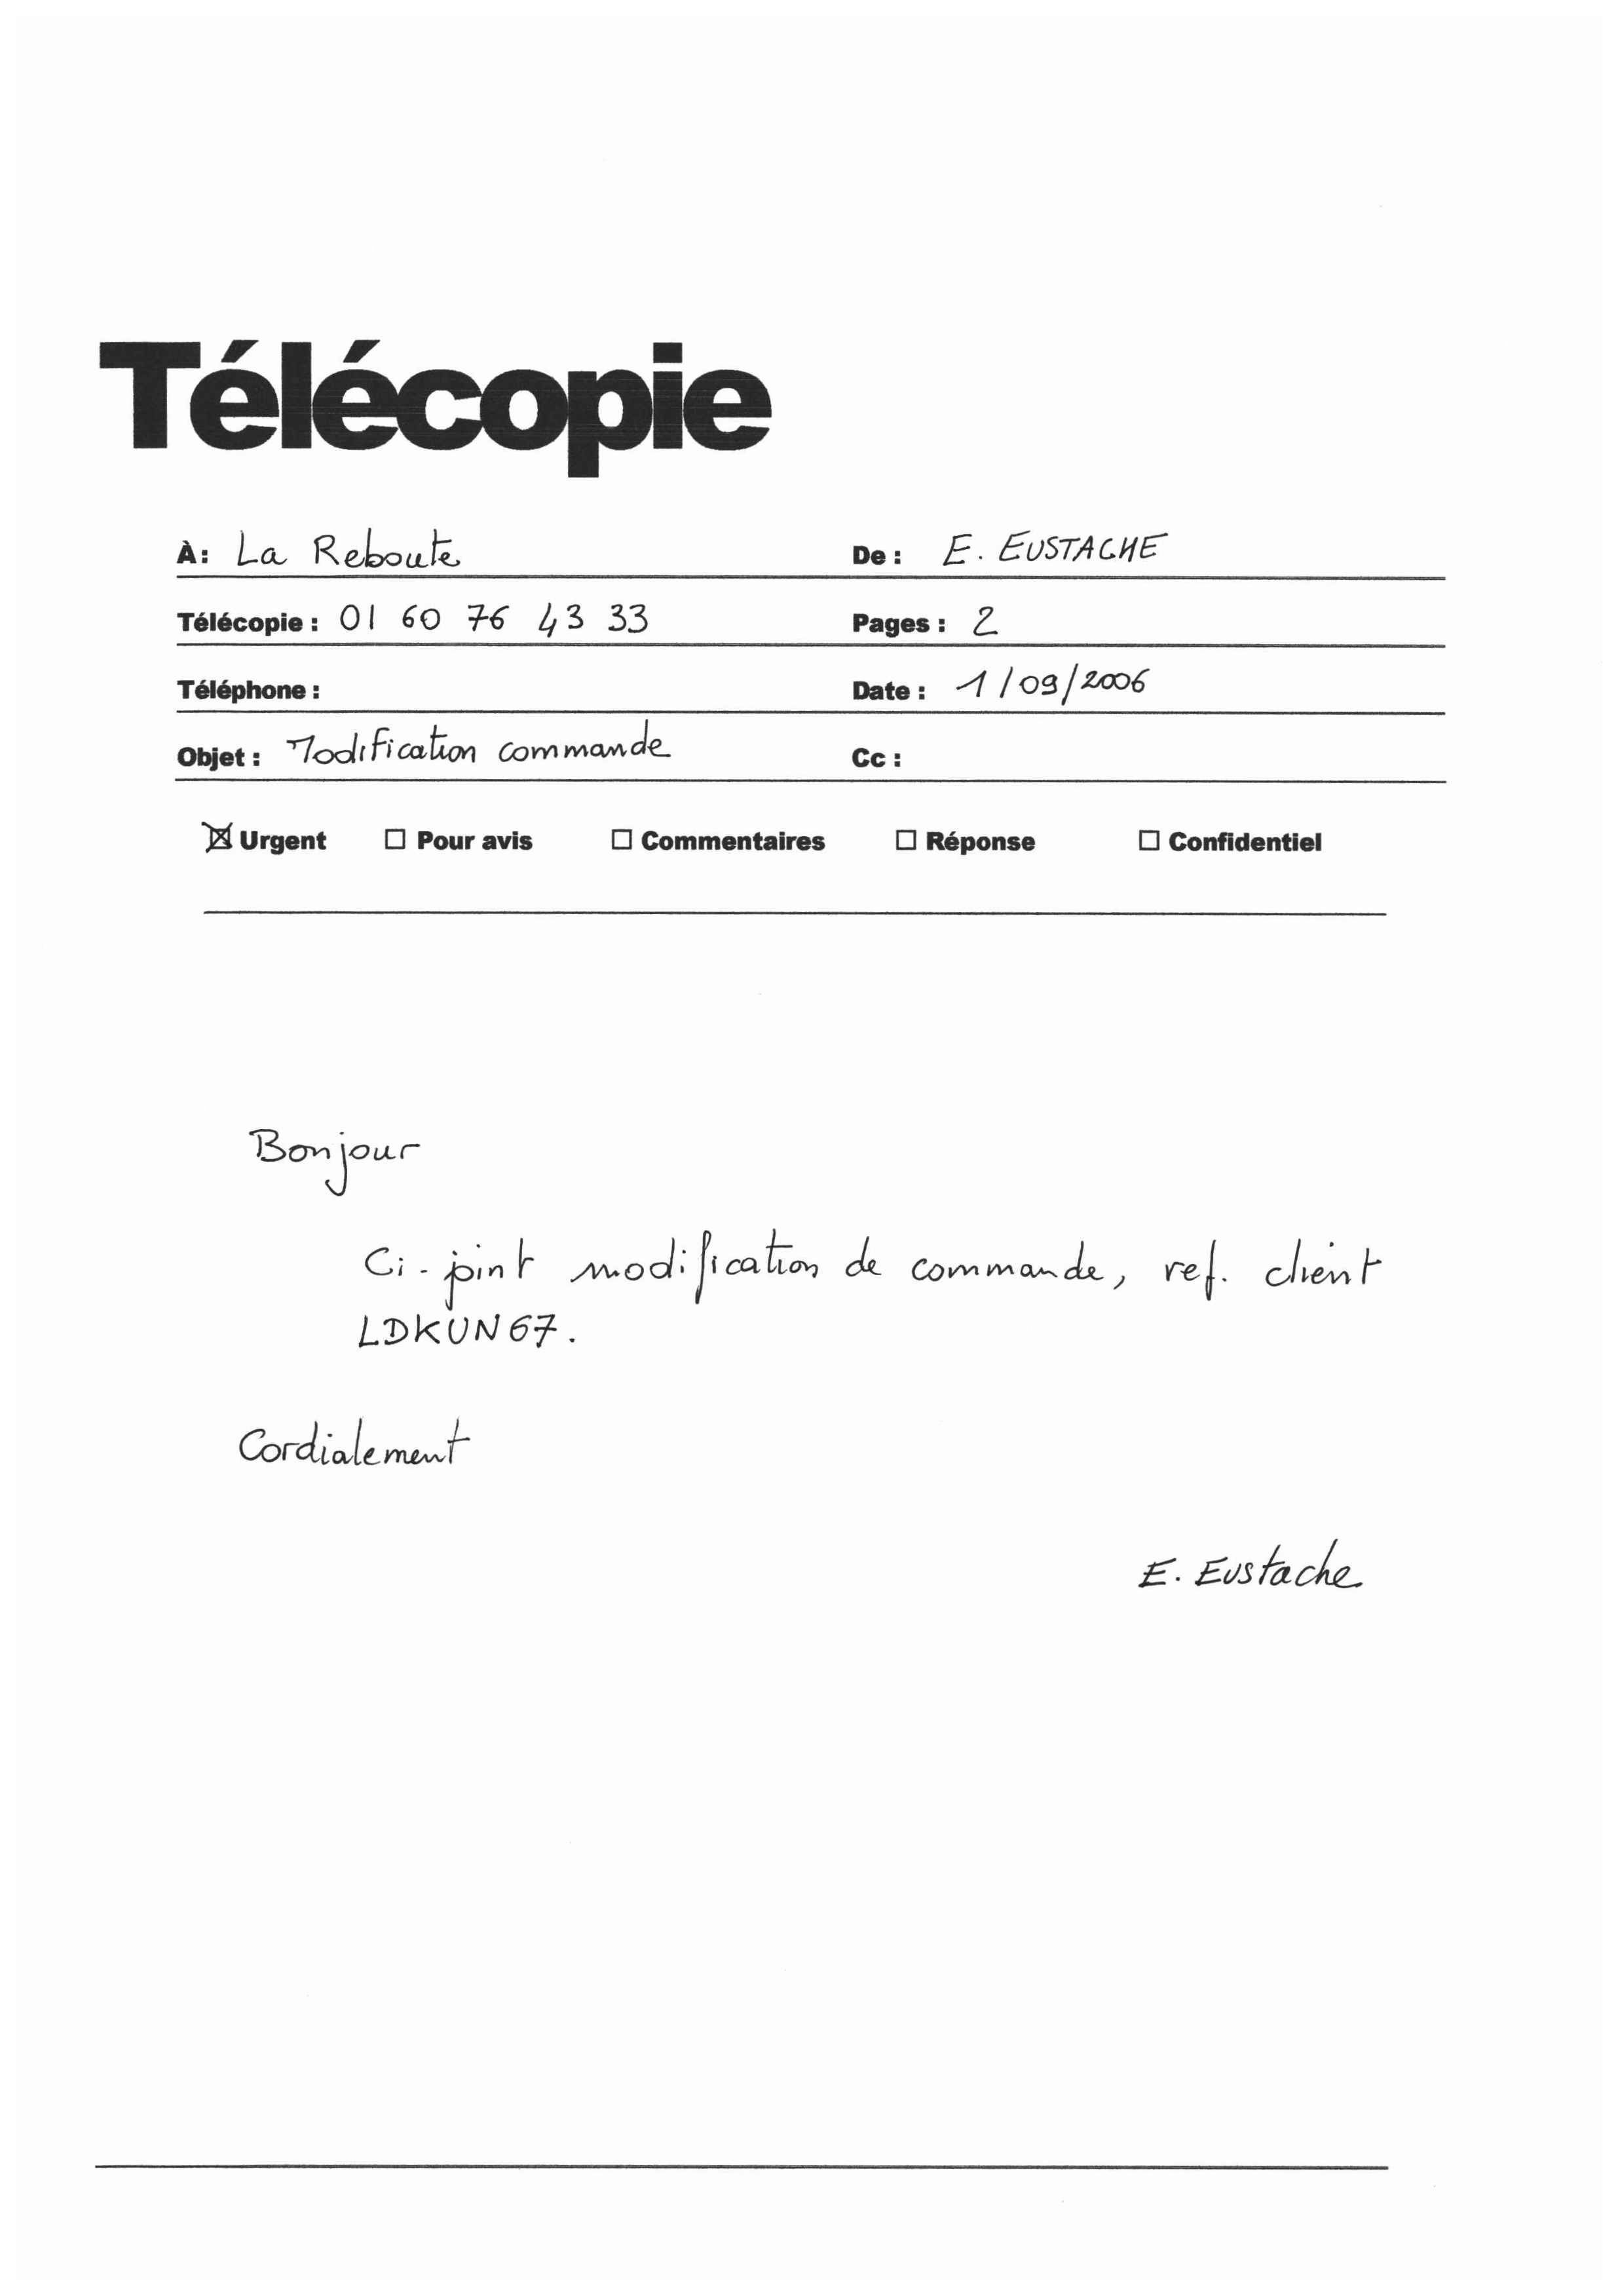 Télécopie
À: La Reboute De : E. EUSTACHE
Télécopie : 01 60 76 43 33 Pages : 2
Téléphone : Date : 1/09/2006
Objet : Modification commande Cc :
☒ Urgent ☐ Pour avis ☐ Commentaires ☐ Réponse ☐ Confidentiel
Bonjour
Ci-joint modification de commande, ref. client
LDKUN67.
Cordialement
E. Eustache